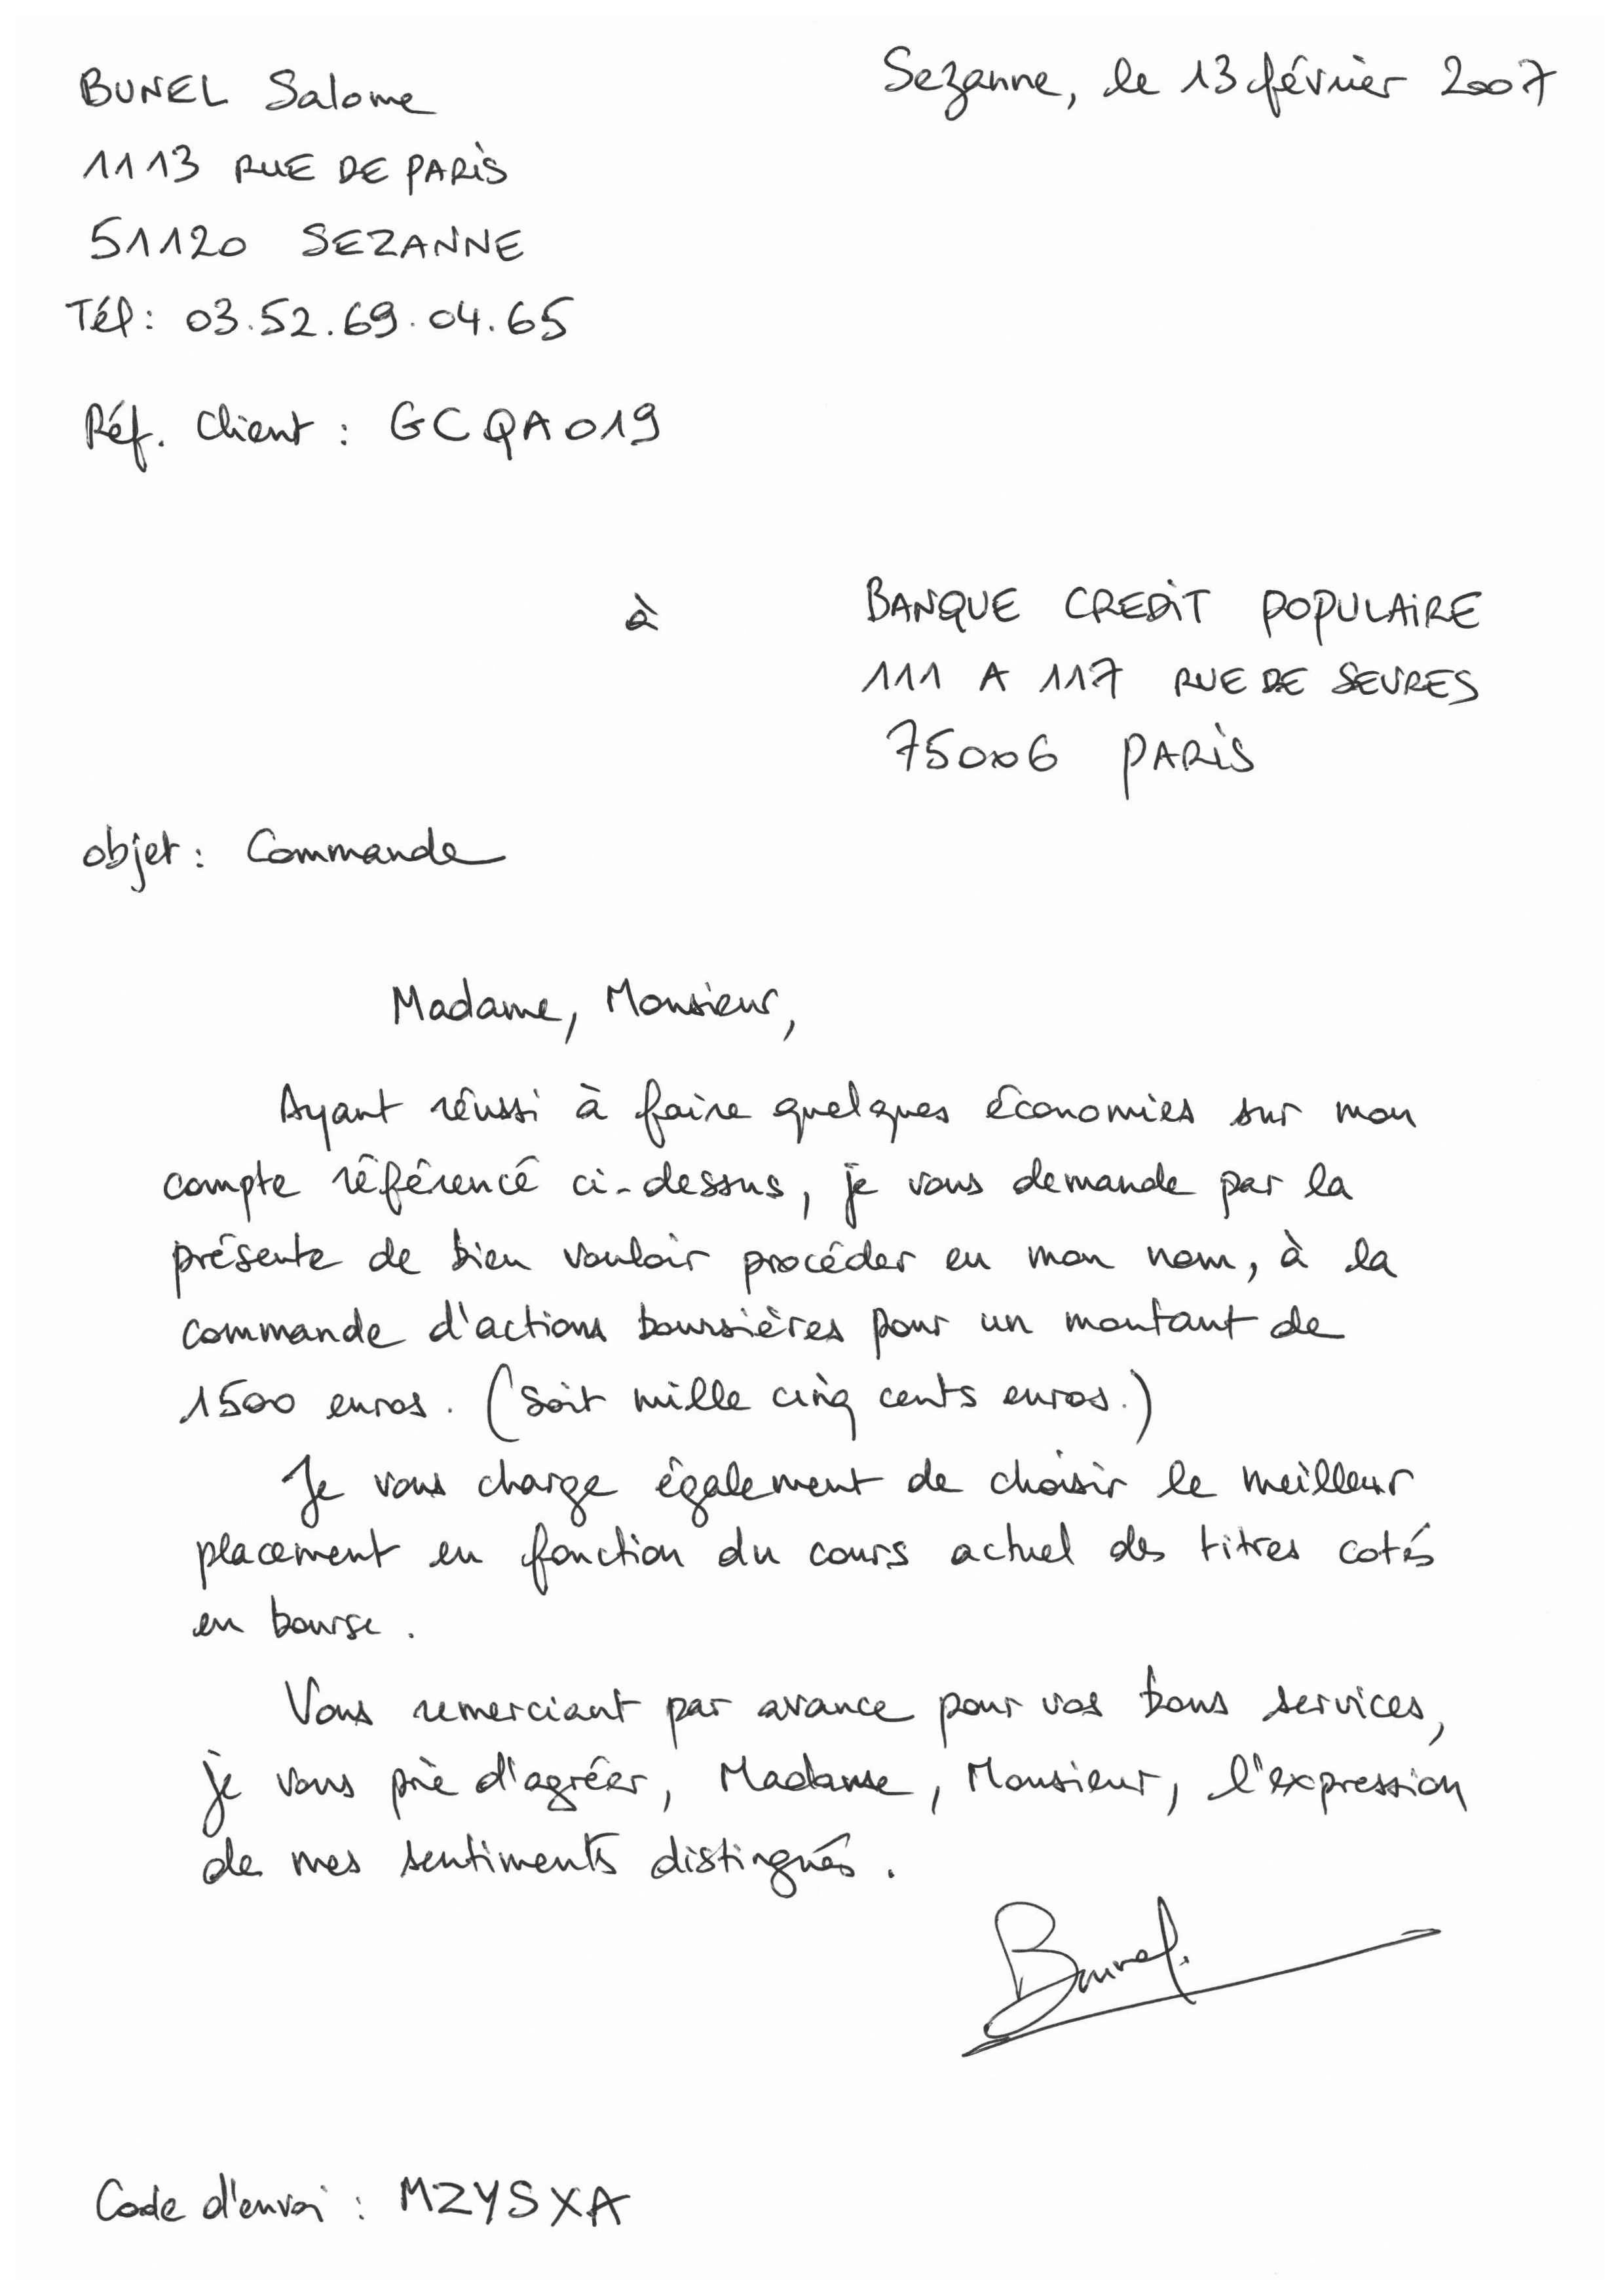 BUNEL Salome
Sezanne, le 13 février 2007
1113 RUE DE PARIS
51120 SEZANNE
Tél: 03.52.69.04.65
Réf. Client : GCQA019
à
BANQUE CREDIT POPULAIRE
111 A 117 RUE DE SEVRES
75006 PARIS
objet : Commande
Madame, Monsieur,
Ayant réussi à faire quelques économies sur mon
compte référencé ci-dessus, je vous demande par la
présente de bien vouloir procéder en mon nom, à la
commande d'actions boursières pour un montant de
1500 euros. (soit mille cinq cents euros.)
Je vous charge également de choisir le meilleur
placement en fonction du cours actuel des titres cotés
en bourse.
Vous remerciant par avance pour vos bons services,
je vous prie d'agréer, Madame, Monsieur, l'expression
de mes sentiments distingués.
Bunel.
Code d'envoi : MZYSXA